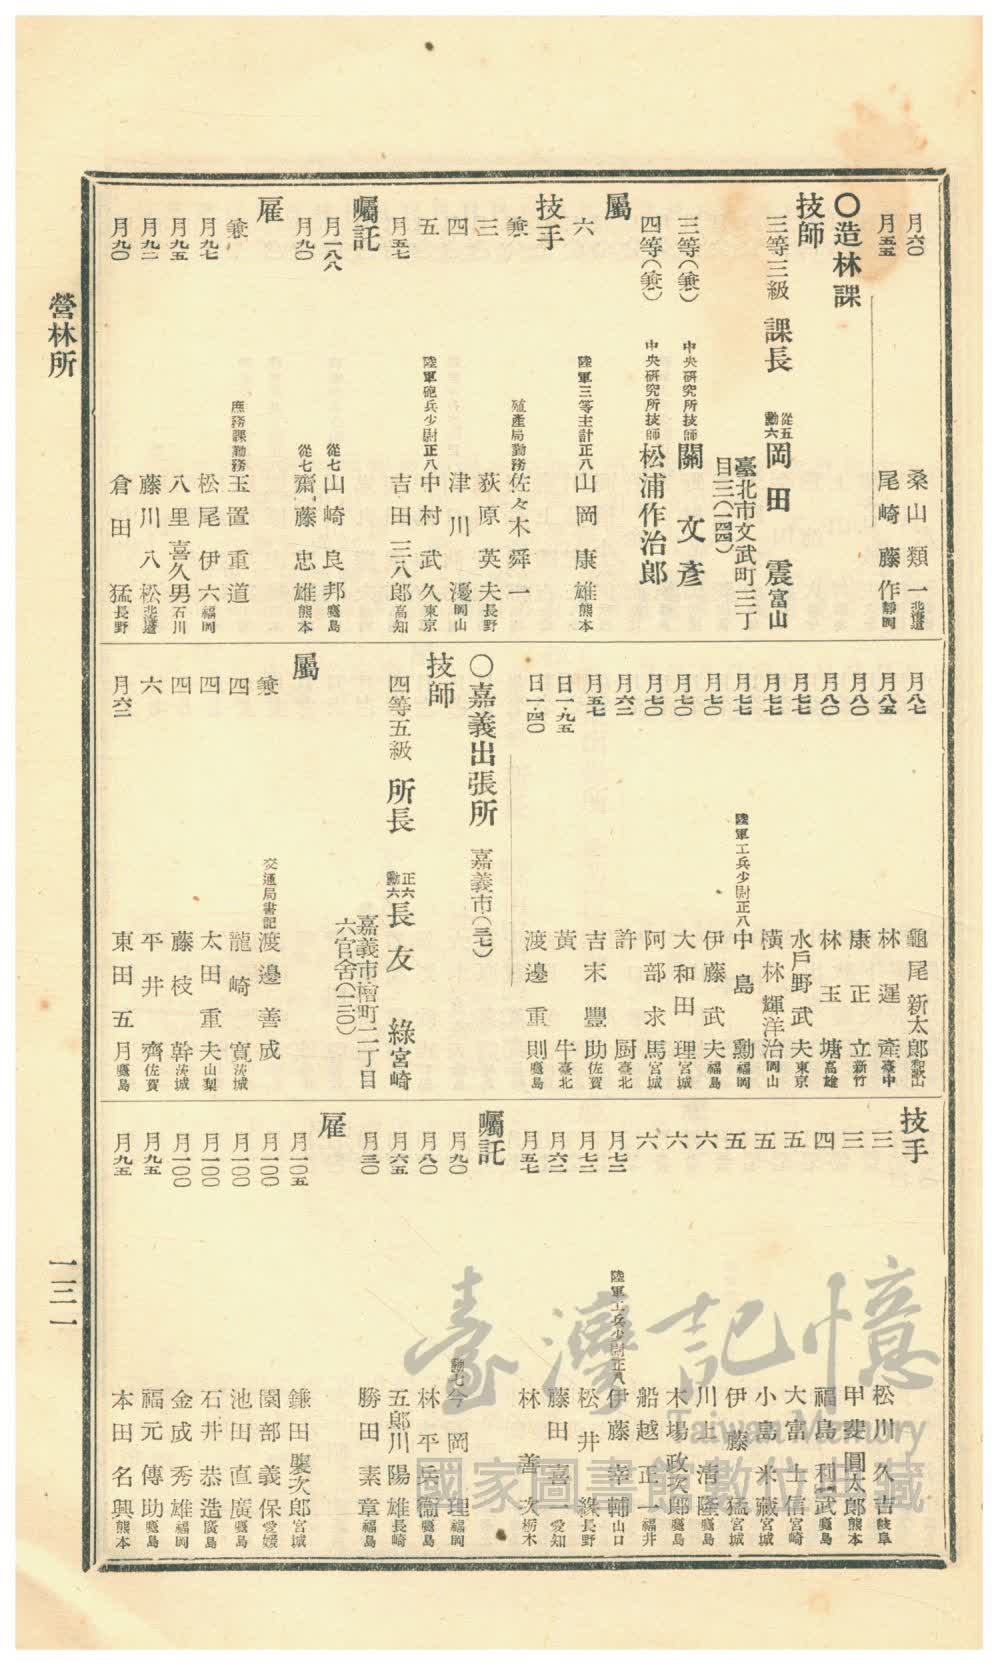 營林所
一三一
月六〇 桑山類一 北海道
月五五 尾崎藤作 靜岡
〇造林課
技師
三等三級 課長 從五勳六 岡田震 富山
臺北市文武町三丁
目三(一四四)
三等(兼) 中央研究所技師 關文彥
四等(兼) 中央研究所技師 松浦作治郎
屬
六 陸軍三等主計正八 山岡康雄 熊本
技手
兼 殖產局勤務 佐々木舜一
三 荻原英夫 長野
四 津川濅 岡山
五 陸軍砲兵少尉正八 中村武久 東京
月五七 吉田三八郎 高知
囑託
月一八八 從七 山崎良邦 鹿兒島
月九〇 從七 齋藤忠雄 熊本
雇
兼 庶務課勤務 玉置重道
月九七 松尾伊六 福岡
月九五 八里喜久男 石川
月九二 藤川八松 北海道
月九〇 倉田猛 長野
月八七 龜尾新太郎 和歌山
月八五 林遲產 臺中
月八〇 康正立 新竹
月八〇 林玉塘 高雄
月七七 水戶野武夫 東京
月七七 橫林輝洋治 岡山
月七七 陸軍工兵少尉正八 中島勳 福岡
月七〇 伊藤武夫 福島
月七〇 大和田理 宮城
月七〇 阿部求馬 宮城
月六二 許厨 臺北
月五七 吉末豐助 佐賀
日一・九五 黃牛 臺北
日一・四〇 渡邊重則 鹿兒島
〇嘉義出張所 嘉義市(三七)
技師
四等五級 所長 正六勳六 長友綠 宮崎
嘉義市檜町二丁目
六官舍(一三〇)
屬
兼 交通局書記 渡邊善成
四 龍崎寬 茨城
四 太田重夫 山梨
四 藤枝幹 茨城
六 平井齊 佐賀
月六二 東田五月 鹿兒島
技手
三 松川久吉 岐阜
三 甲斐圓太郎 熊本
四 福島利武 鹿兒島
五 大富士信 宮崎
五 小島米藏 宮城
五 伊藤猛 宮城
六 川上清隆 鹿兒島
六 木場政次郎 鹿兒島
六 船越正一 福井
月七二 陸軍工兵少尉正八 伊藤幸輔 山口
月七二 松井緑 長野
月六二 藤田喜一 愛知
月五七 林善次 栃木
囑託
月九〇 勳七 今岡理 福岡
月八〇 林平兵衞 鹿兒島
月六五 五郎川陽雄 長崎
月三〇 勝田素章 福島
雇
月一〇五 鎌田 次郎 宮城
月一〇〇 園部義保 愛媛
月一〇〇 池田直廣 鹿兒島
月一〇〇 石井恭造 廣島
月一〇〇 金成秀雄 福岡
月九五 福元傳助 鹿兒島
月九五 本田名興 熊本
臺灣記憶
Taiwan Memory
國家圖書館數位典藏